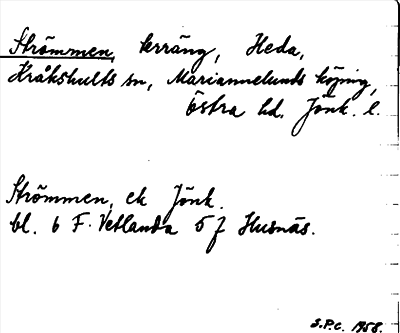 Strömmen, terräng, Heda,
Kråkshults sn, Mariannelunds köping,
Östra hd. Jönk. l.
Strömmen, ek Jönk.
bl. 6 F. Vetlanda 5 f Husnäs.
S.P.C. 1958.